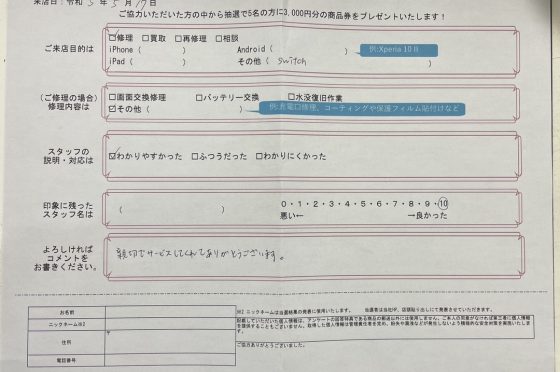 来店日：令和 5 年 5 月 17 日
ご協力いただいた方の中から抽選で5名の方に3,000円分の商品券をプレゼントいたします！
ご来店目的は
☑修理 □買取 □再修理 □相談
iPhone（ ） Android（ ） 例:Xperia 10 Ⅱ
iPad（ ） その他（ switch ）
（ご修理の場合）
修理内容は
□画面交換修理 □バッテリー交換 □水没復旧作業
☑その他（ ） 例:充電口修理、コーティングや保護フィルム貼付けなど
スタッフの
説明・対応は
☑わかりやすかった □ふつうだった □わかりにくかった
印象に残った
スタッフ名は
（ ）
0・1・2・3・4・5・6・7・8・9・⑩
悪い← →良かった
よろしければ
コメントを
お書きください。
親切でサービスしてくれてありがとうございます。
お名前
ニックネーム※2
住所
〒
電話番号
※2 ニックネームは当選結果の発表に使用いたします。 当選者は当社HP、店頭貼り出しにて発表させていただきます。
ご協力ありがとうございました。